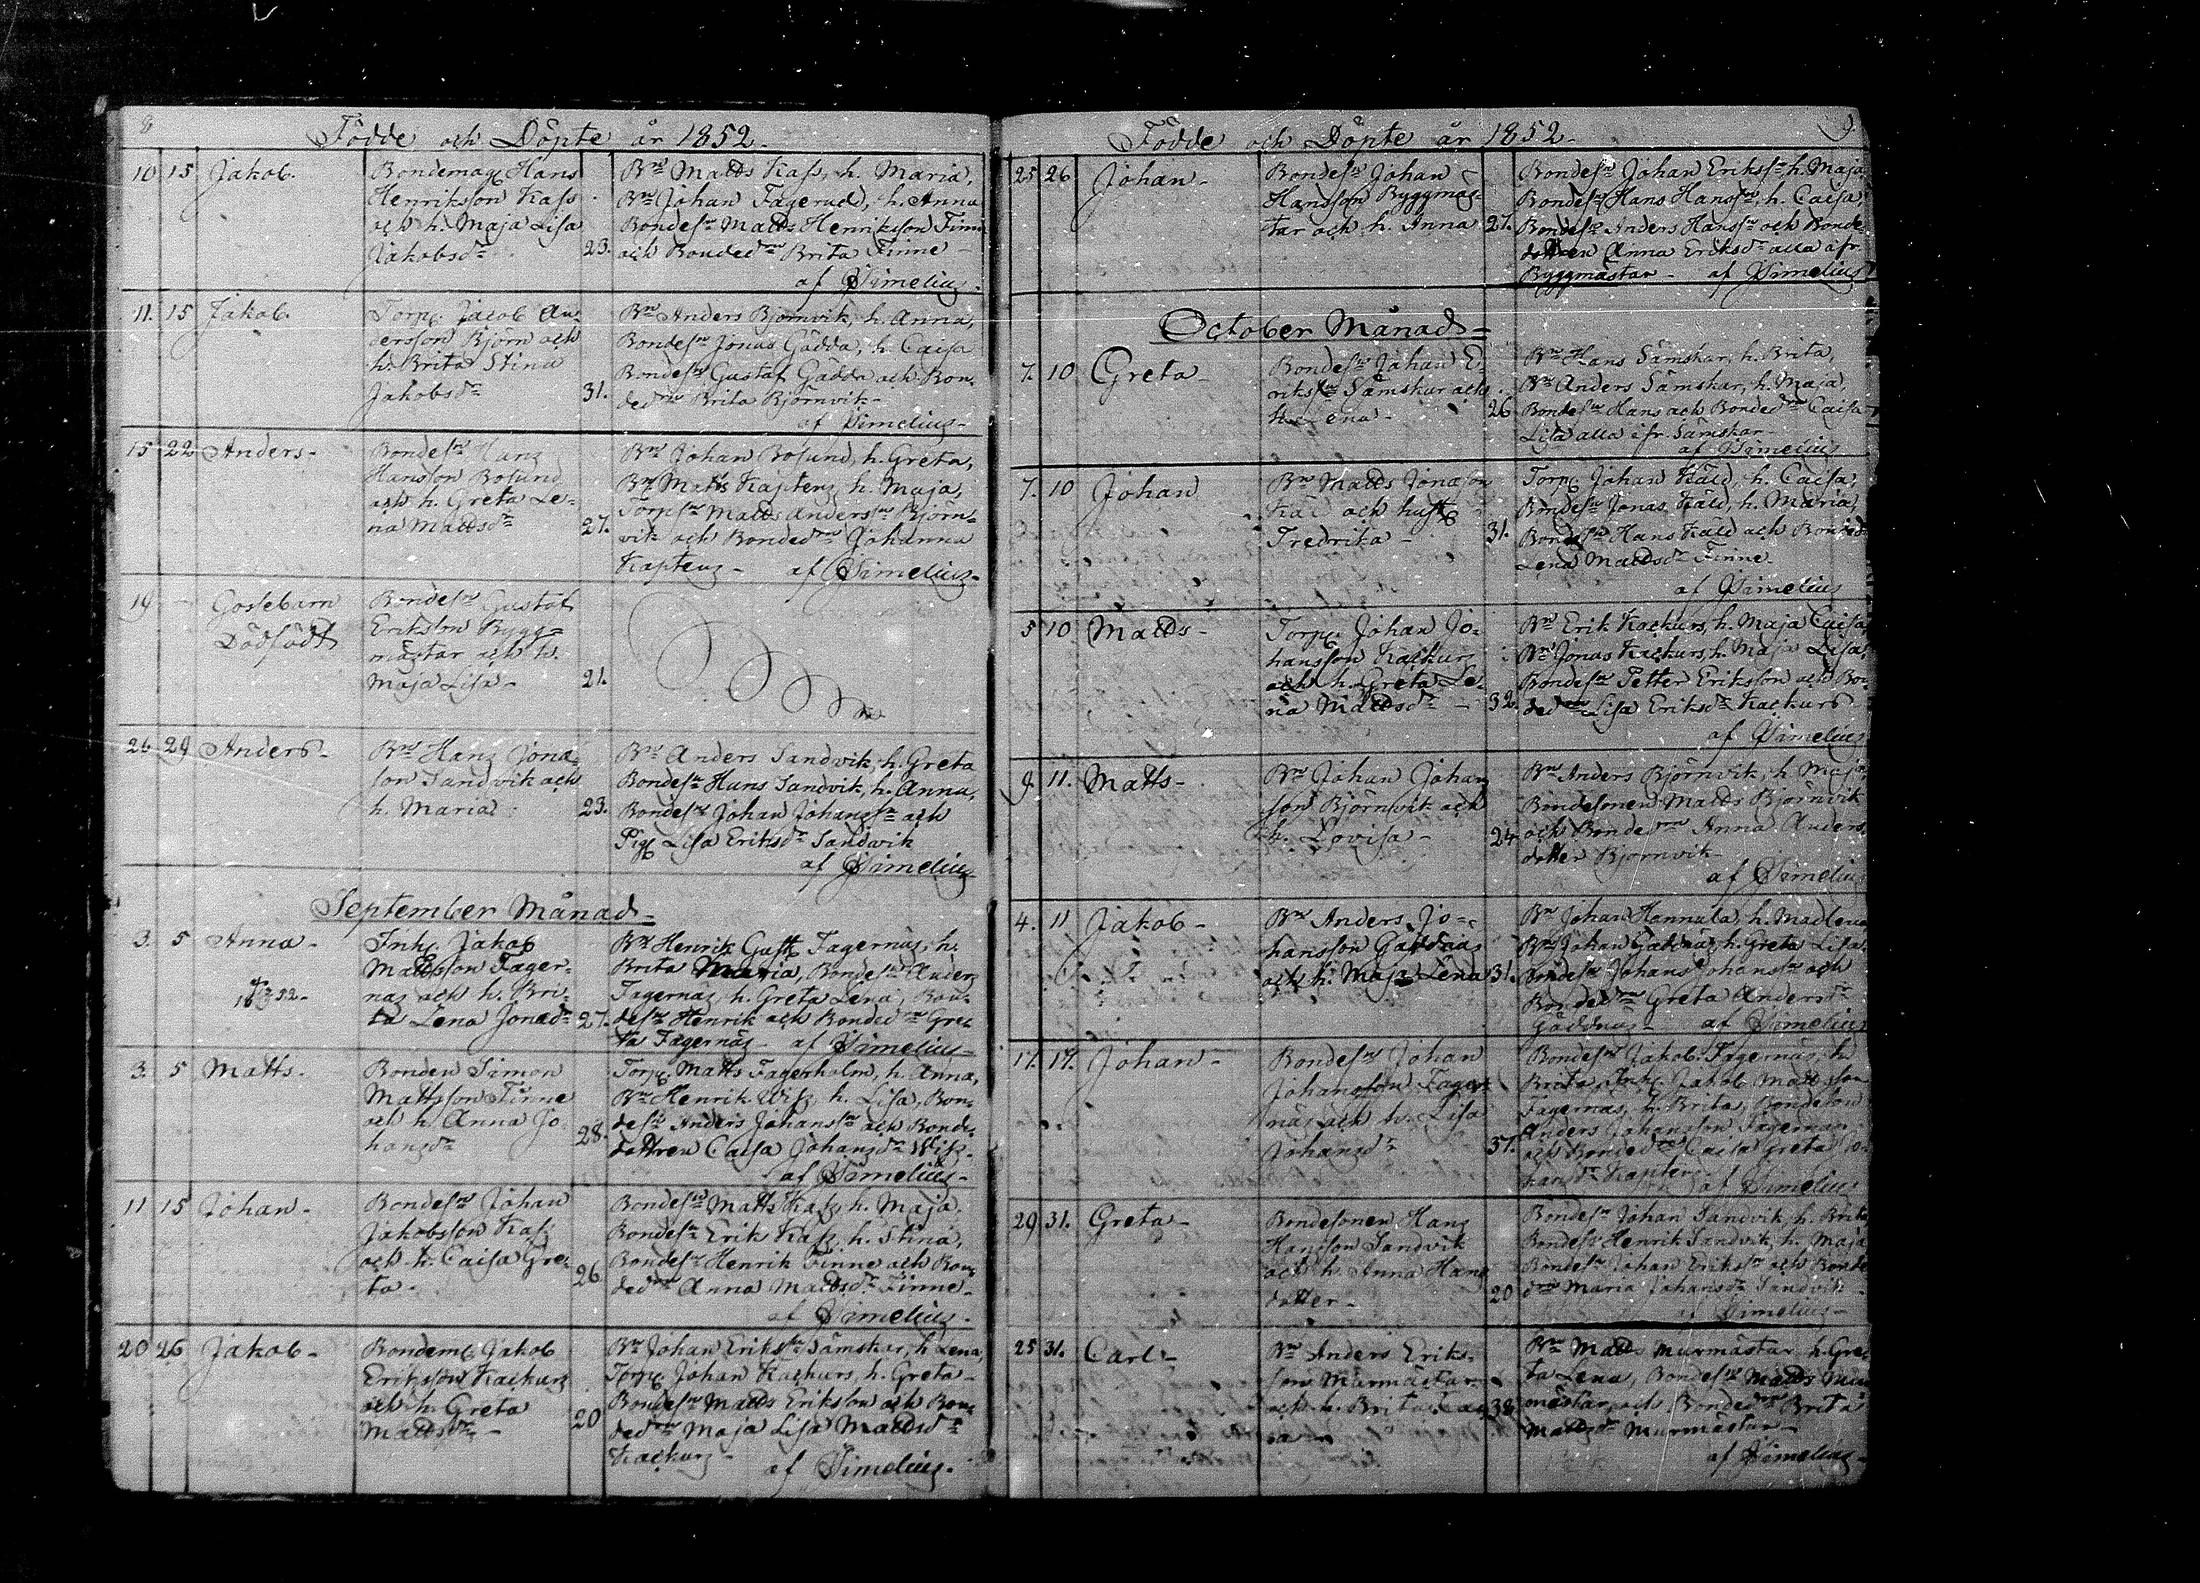 8
Födde och Döpte år 1852.
10 15 Jakob.
Bondemåg Hans
Henriksson Kass
och h. Maja Lisa
Jakobsdr
23.
Bn Matts Kass, h. Maria,
Bn Johan Fagerudd, h. Anna
Bondesn Matts Henriksson Finne
och Bondedrn Brita Finne
af Simelius.
11. 15 Jakob.
Torp. Jacob An-
dersson Björn och
h. Brita Stina
Jakobsdr
31.
Bn Anders Björnvik, h. Anna,
Bondesn Jonas Gädda, h. Caisa
Bondesn Gustaf Gädda och Bon-
dedrn Brita Björnvik
af Simelius
15 22 Anders
Bondesn Hans
Hansson Bosund
och h. Greta Le-
na Mattsdr
27.
Bn Johan Bosund, h. Greta,
Bn Matts Kaptens, h. Maja,
Torpsn Matts Anderssn Björn-
vik och Bondedrn Johanna
Kaptens af Simelius
19 Gossebarn
Dödfödt
Bondesn Gustaf
Eriksson Bygg-
mästar och h.
Maja Lisa
21.
26 29 Anders
Bn Hans Jona-
son Sandvik och
h. Maria
23.
Bn Anders Sandvik, h. Greta
Bondesn Hans Sandvik, h. Anna,
Bondesn Johan Johanssn och
Pig. Lisa Eriksdr Sandvik
af Simelius
September Månad
3. 5 Anna
Inh. Jakob
Mattsson Fager-
näs och h. Bri-
ta Lena Jonædr
27.
Bn Henrik Gust. Fagernäs, h.
Brita Maria, Bondesn Anders
Fagernäs, h. Greta Lena, Bon-
desn Henrik och Bondedrn Gre-
ta Fagernäs af Simelius
3. 5 Matts.
Bonden Simon
Mattsson Finne
och h. Anna Jo-
hansdr
28.
Torp. Matts Fagerholm, h. Anna,
Bn Henrik Wisz, h. Lisa, Bon-
desn Anders Johanssn och Bonde-
dottren Caisa Johansdr Wisz
af Simelius
11 15 Johan
Bondesn Johan
Jakobsson Kass
och h. Caisa Gre-
ta
26
Bondesn Matts Kass, h. Maja,
Bondesn Erik Kass, h. Stina,
Bondesn Henrik Finne och Bon-
dedrn Anna Mattsdr Finne
af Simelius
20 26 Jakob
Bondem. Jakob
Eriksson Kackurs
och h. Greta
Mattsdr
20
Bn Johan Erikssn Sämskar, h Lena,
Torp. Johan Kackurs, h. Greta
Bondesn Matts Eriksson och Bon-
dedrn Maja Lisa Mattsdr
Kackurs
af Simelius.
9.
Födde och Döpte år 1852.
25 26 Johan
Bondesn Johan
Hansson Byggmäs-
tar och h. Anna
27.
Bondesn Johan Erikssn h. Maja,
Bondesn Hans Hanssn, h. Caisa,
Bondesn Anders Hanssn och Bonde-
dottren Anna Eriksdr alla ifr.
Byggmästar af Simelius
October Månad
7. 10 Greta
Bondesn Johan E-
rikssn Sämskar och
h. Lena
26
Bn Hans Sämskar, h. Brita,
Bn Anders Sämskar, h. Maja,
Bondesn Hans och Bondedrn Caisa
Lisa alla ifr. Sämskar
af Simelius
7. 10 Johan
Bn Matts Jonæson
Käld och hust.
Fredrika
31.
Torp. Johan Käld, h. Caisa,
Bondesn Jonas Käld, h. Maria,
Bondesn Hans Käld och Bonded.
Lena Mattsdr Finne
af Simelius
5 10 Matts
Torp. Johan Jo-
hansson Kackurs
och h. Greta Le-
na Mattsdr
32.
Bn Erik Kackurs, h. Maja Caisa,
Bn Jonas Kackurs, h. Maja Lisa,
Bondesn Petter Eriksson och Bon-
dedrn Lisa Eriksdr Kackurs
af Simelius
9. 11. Matts
Bn Johan Johans
son Björnvik och
h. Lovisa
24
Bn Anders Björnvik, h Maja,
Bondesonen Matts Björnvik
och Bondedrn Anna Anders
dotter Björnvik
af Simelius
4. 11 Jakob
Bn Anders Jo-
hansson Gäddnäs
och h. Maja Lena
31.
Bn Johan Hannula, h. Madlena
Bn Johan Gäddnäs, h. Greta Lisa
Bondesn Johan Johanssn och
Bondedrn Greta Andersdr
Gäddnäs af Simelius
17. 17. Johan
Bondesn Johan
Johansson Fager-
näs och h. Lisa
Johansdr
37.
Bondesn Jakob Fagernäs, h
Brita, Inh. Jakob Mattsson
Fagernäs, h. Brita, Bondeson
Anders Johansson Fagernäs
och Bondedrn Caisa Greta Jo-
hansdr Kaptens af Simelius
29 31. Greta
Bondesonen Hans
Hansson Sandvik
och h. Anna Hans
dotter
20
Bondesn Johan Sandvik, h. Brita
Bondesn Henrik Sandvik, h. Maja
Bondesn Johan Erikssn och Bonde
drn Maria Johansdr Sandvik
af Simelius
25 31. Carl
Bn Anders Eriks-
son Murmästar
och h. Brita Cai
sa
38
Bn Matts Murmästar, h. Gre-
ta Lena, Bondesn Matts Mur
mästar, och Bondedrn Brita
Mattsdr Murmästar
af Simelius